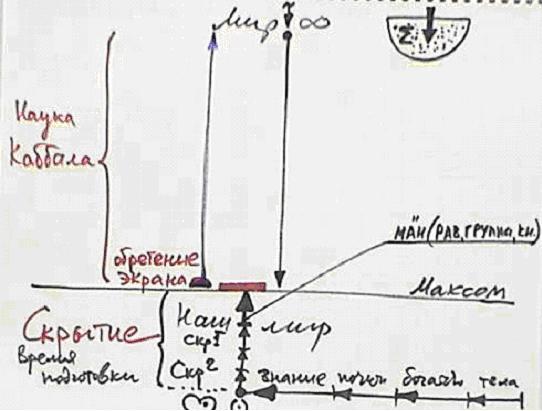 Мир ∞
Z
Наука
Каббала
МАН (РАВ, ГРУППА, КН.)
обретение
экрана
Максом
Скрытие
Время
подготовки
Наш мир
скр 1
Скр 2
знание почёт богатс тела